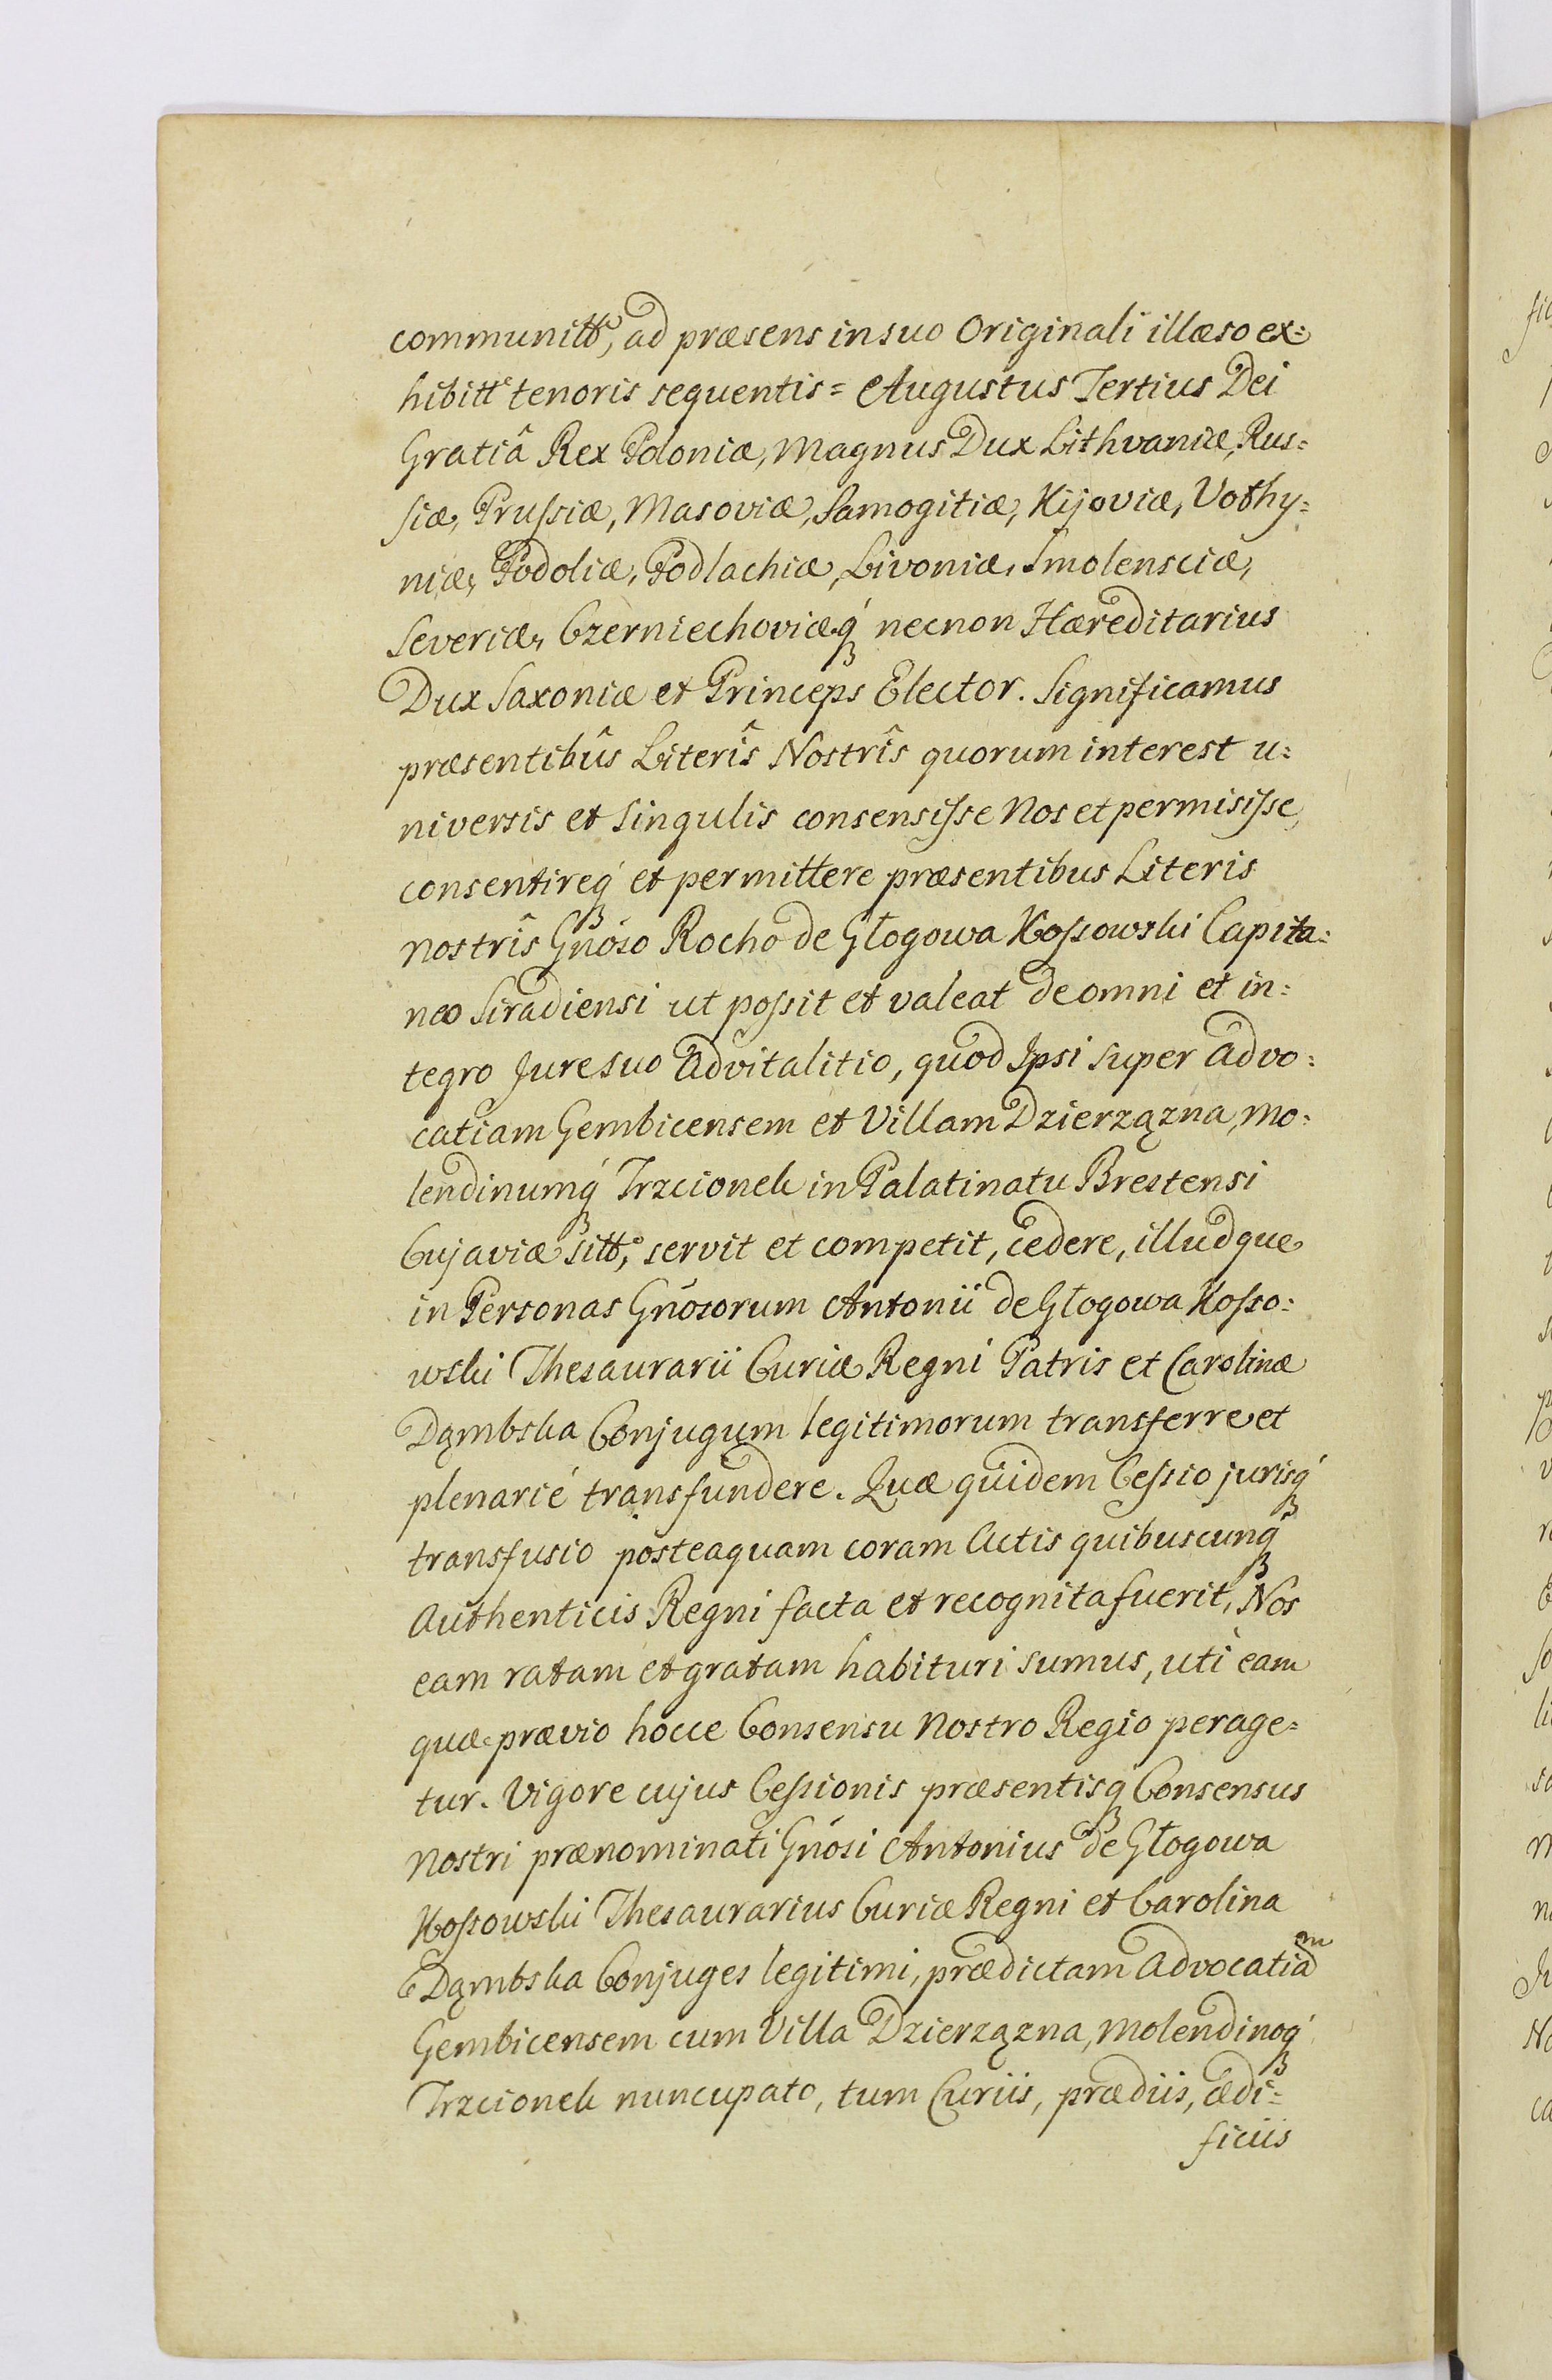 communitt^e, ad præsens in suo Originali illæso ex=
hibitt^e tenoris sequentis = Augustus Tertius Dei
Gratiâ Rex Poloniæ, Magnus Dux Lithvaniæ, Rus=
siæ, Prussiæ, Masoviæ, Samogitiæ, Kijoviæ, Volhy=
niæ, Podoliæ, Podlachiæ, Livoniæ, Smolensciæ,
Severiæ, Czerniechoviæq́ꝫ necnon Hæreditarius
Dux Saxoniæ et Princeps Elector. Significamus
præsentibûs Literîs Nostrîs quorum interest u=
niversis et singulis consensisse Nos et permisisse,
consentireq́ꝫ et permittere præsentibus Literis
nostrîs Gn̄óso Rocho de Głogowa Kossowski Capita=
neo Siradiensi ut possit et valeat de omni et in=
tegro Jure suo advitalitio, quod Ipsi super advo=
catiam Gembicensem et Villam Dzierzązna, mo=
lendinumq́ꝫ Trzcionek in Palatinatu Brestensi
Cujaviæ sitt^e, servit et competit, cedere, illudque
in Personas Gn̄ósorum Antonii de Głogowa Kosso=
wski Thesaurarii Curiæ Regni Patris et Carolinæ
Dąmbska Conjugum legitimorum transferre et
plenarié transfundere. Quæ quidem Cessio jurisq́ꝫ
transfusio posteaquam coram Actis quibuscunq́ꝫ
Authenticis Regni facta et recognita fuerit, Nos
eam ratam et gratam habituri sumus, uti eam
quæ prævio hocce Consensu Nostro Regio perage=
tur. Vigore cujus Cessionis præsentisqꝫ Consensus
Nostri prænominati Gn̄ósi Antonius de Głogowa
Kossowski Thesaurarius Curiæ Regni et Carolina
Dąmbska Conjuges legitimi, prædictam Advocatia^m
Gembicensem cum Villa Dzierzązna, molendinoq́ꝫ
Trzcionek nuncupato, tum Curiis, prædiis, ædi=
ficiis